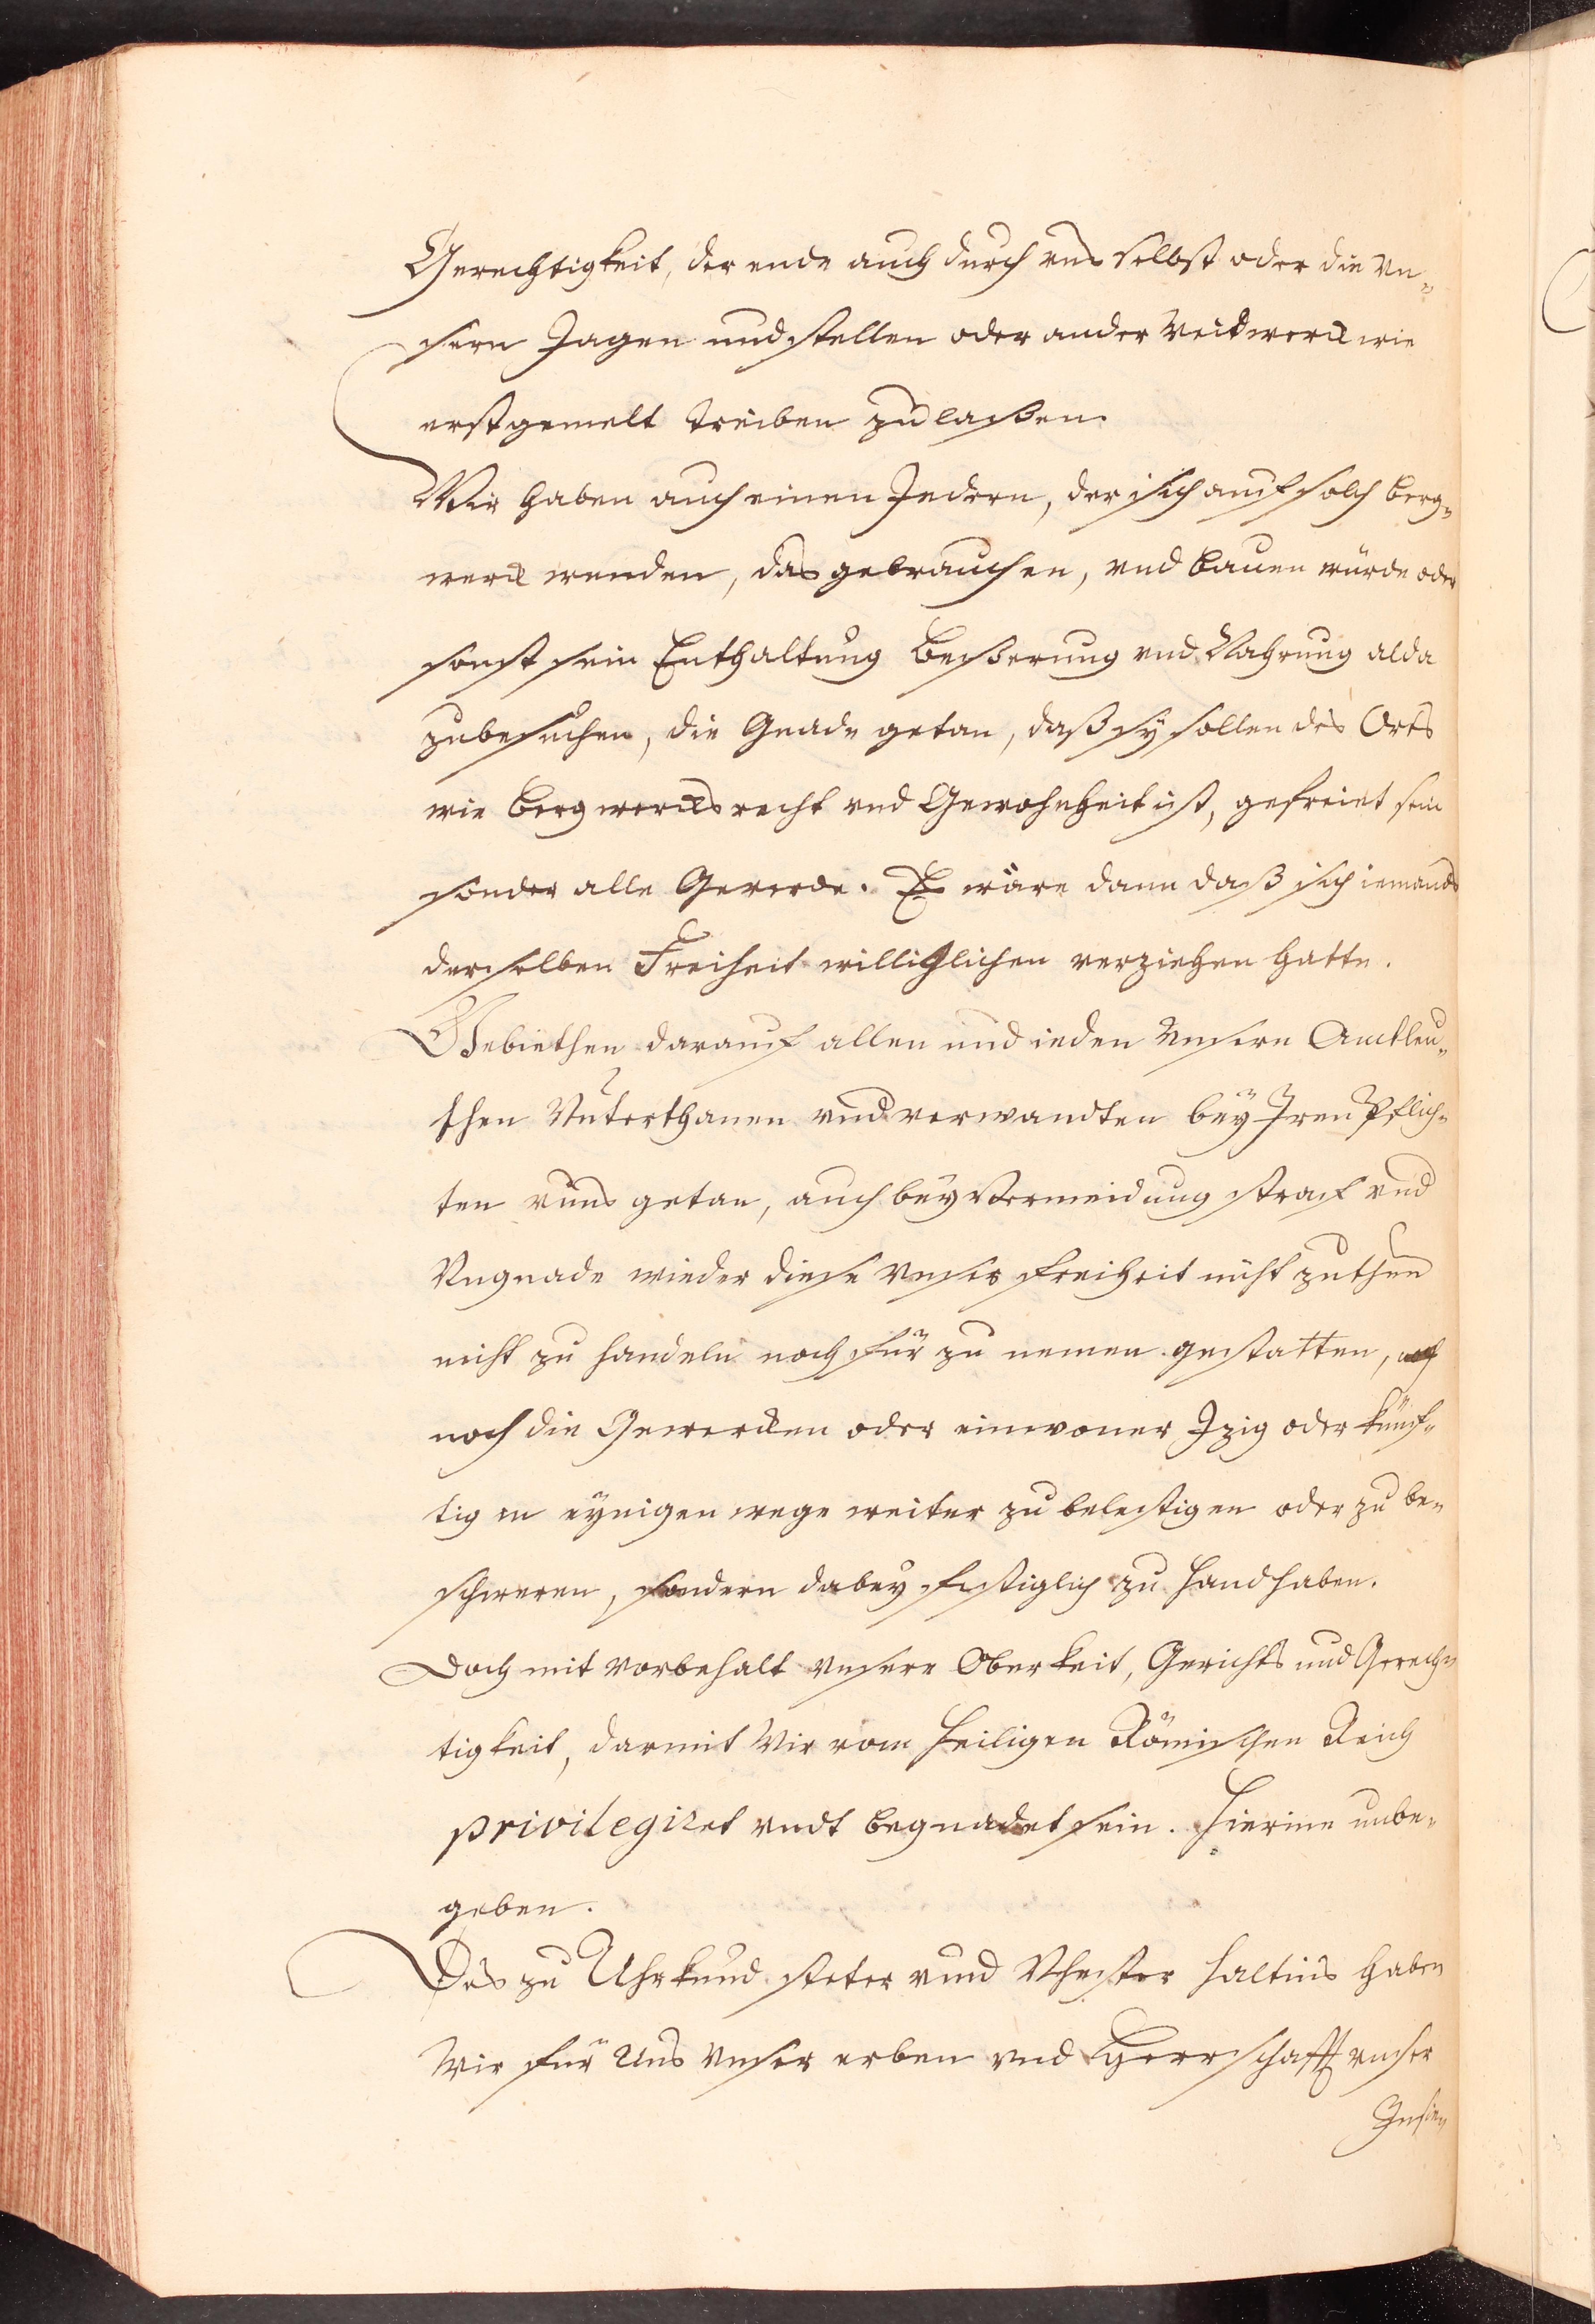 Gerechtigkeit, der ende auch durch uns selbst oder die vn-
sern Jagen und stellen oder ander Weidwerck wie
erstgemelt treiben zulaßen.
Wir haben auch einen Jedern, der sich auf solch berg-
werck wenden, das gebrauchen, vnd bauen würde oder
sonst sein Enthaltung Beßerung vnd Nahrung alda
zubesuchen, die Gnade getan, daß sy sollen des Orts
wie bergwercksrecht vnd Gewohnheit ist, gefreiet sein
sonder alle Geverde. Es wäre dann daß sich iemands
derselben Freiheit williglichen verziehen hatte.
Gebiethen darauf allen und ieden Vnsern Amtleu-
then Vnterthanen vnd verwandten bey Iren Pflich-
ten vnns getan, auch bey Vermeidung straf vnd
Vngnade wieder diese Vnser freiheit nicht zuthun
nicht zu handeln noch für zu nemen gestatten,
noch die Gewercken oder einwoner Izig oder künf-
tig in eynigen wege weiter zu belestigen oder zu be-
schweren, sondern dabey festiglich zu handhaben.
Doch mit vorbehalt vnserer Oberkeit, Gerichts und Gerech-
tigkeit, darmit Wir vom heiligen Römischen Reich
privilegiret vndt begnadet sein. Hierinn unbe-
geben.
Des zu Uhrkund steter vnnd Vhester haltnis haben
Wir für Uns Vnser erben vnd Herrschafft vnser
Insie-